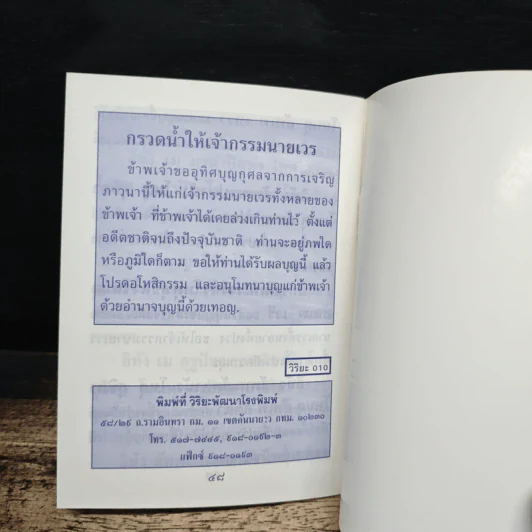 กรวดน้ำให้เจ้ากรรมนายเวร
ข้าพเจ้าขออุทิศบุญกุศลจากการเจริญ
ภาวนานี้ให้แก่เจ้ากรรมนายเวรทั้งหลายของ
ข้าพเจ้า ที่ข้าพเจ้าได้เคยล่วงเกินท่านไว้ ตั้งแต่
อดีตชาติจนถึงปัจจุบันชาติ ท่านจะอยู่ภพใด
หรือภูมิใดก็ตาม ขอให้ท่านได้รับผลบุญนี้ แล้ว
โปรดอโหสิกรรม และอนุโมทนาบุญแก่ข้าพเจ้า
ด้วยอำนาจบุญนี้ด้วยเทอญ.
วิริยะ 010
พิมพ์ที่ วิริยะพัฒนาโรงพิมพ์
๕๘/๒๕ ถ.รามอินทรา กม. ๑๑ เขตคันนายาว กทม. ๑๐๒๓๐
โทร. ๕๑๗-๗๔๔๕, ๙๑๘-๐๑๙๒-๓
แฟ็กซ์ ๙๑๘-๐๑๙๓
๔๘